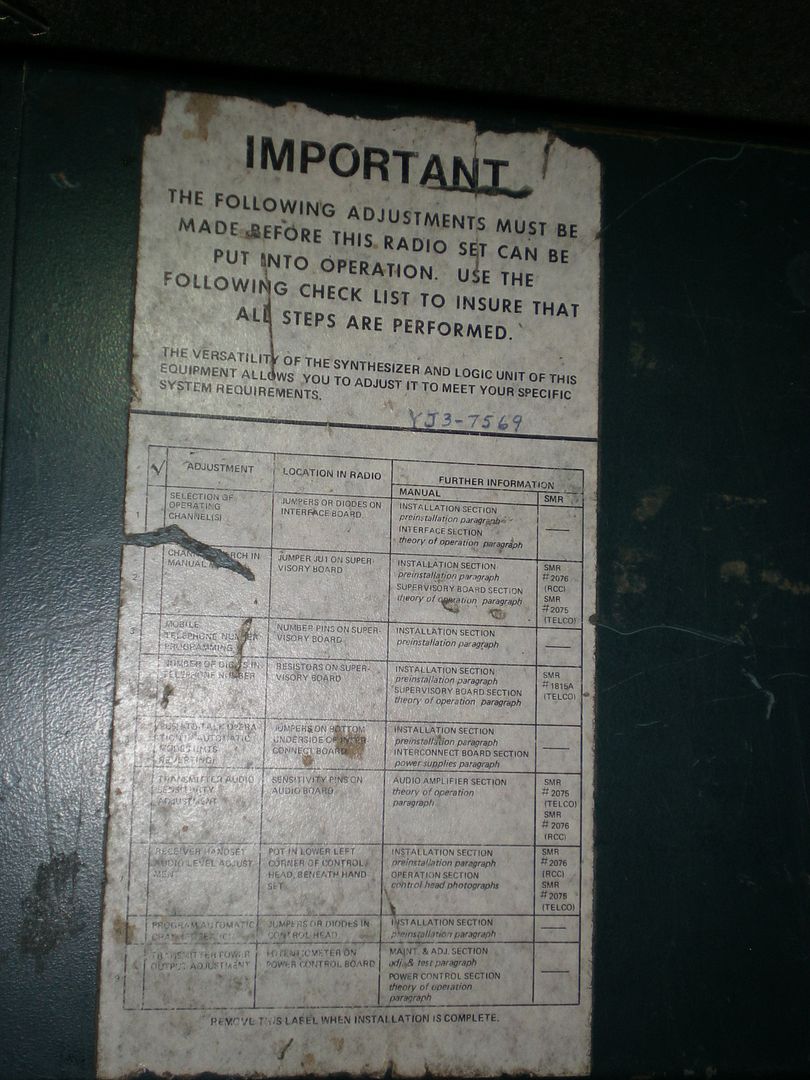 IMPORTANT
THE FOLLOWING ADJUSTMENTS MUST BE
MADE BEFORE THIS RADIO SET CAN BE
PUT INTO OPERATION. USE THE
FOLLOWING CHECK LIST TO INSURE THAT
ALL STEPS ARE PERFORMED.
THE VERSATILITY OF THE SYNTHESIZER AND LOGIC UNIT OF THIS
EQUIPMENT ALLOWS YOU TO ADJUST IT TO MEET YOUR SPECIFIC
SYSTEM REQUIREMENTS.
YJ3-7569
√ ADJUSTMENT LOCATION IN RADIO FURTHER INFORMATION
MANUAL SMR
1 SELECTION OF OPERATING CHANNEL(S)
JUMPERS OR DIODES ON
INTERFACE BOARD
INSTALLATION SECTION
preinstallation paragraph
INTERFACE SECTION
theory of operation paragraph
2 IN
MANUAL
JUMPER JU1 ON SUPER-
VISORY BOARD
INSTALLATION SECTION
preinstallation paragraph
SUPERVISORY BOARD SECTION
theory of operation paragraph
SMR
#2076
(RCC)
SMR
#2075
(TELCO)
3 MOBILE
TELEPHONE NUMBER
PROGRAMMING
NUMBER PINS ON SUPER-
VISORY BOARD
INSTALLATION SECTION
preinstallation paragraph
NUMBER OF DIGITS IN
TELEPHONE NUMBER
RESISTORS ON SUPER-
VISORY BOARD
INSTALLATION SECTION
preinstallation paragraph
SUPERVISORY BOARD SECTION
theory of operation paragraph
SMR
#1815A
(TELCO)
PUSH-TO-TALK OPERA-
AUTOMATIC
JUMPERS ON BOTTOM
UNDERSIDE OF INTER
CONNECT BOARD
INSTALLATION SECTION
preinstallation paragraph
INTERCONNECT BOARD SECTION
power supplies paragraph
TRANSMITTER AUDIO
SENSITIVITY
ADJUSTMENT
SENSITIVITY PINS ON
AUDIO BOARD
AUDIO AMPLIFIER SECTION
theory of operation
paragraph
SMR
#2075
(TELCO)
SMR
#2076
(RCC)
RECEIVER HANDSET
AUDIO LEVEL ADJUST
MENT
POT IN LOWER LEFT
CORNER OF CONTROL
HEAD, BENEATH HAND
SET
INSTALLATION SECTION
preinstallation paragraph
OPERATION SECTION
control head photographs
SMR
#2076
(RCC)
SMR
#2075
(TELCO)
PROGRAM AUTOMATIC
JUMPERS OR DIODES IN
CONTROL HEAD
INSTALLATION SECTION
preinstallation paragraph
9 TRANSMITTER POWER
OUTPUT ADJUSTMENT
POTENTIOMETER ON
POWER CONTROL BOARD
MAINT. & ADJ. SECTION
adj. & test paragraph
POWER CONTROL SECTION
theory of operation
paragraph
REMOVE THIS LABEL WHEN INSTALLATION IS COMPLETE.